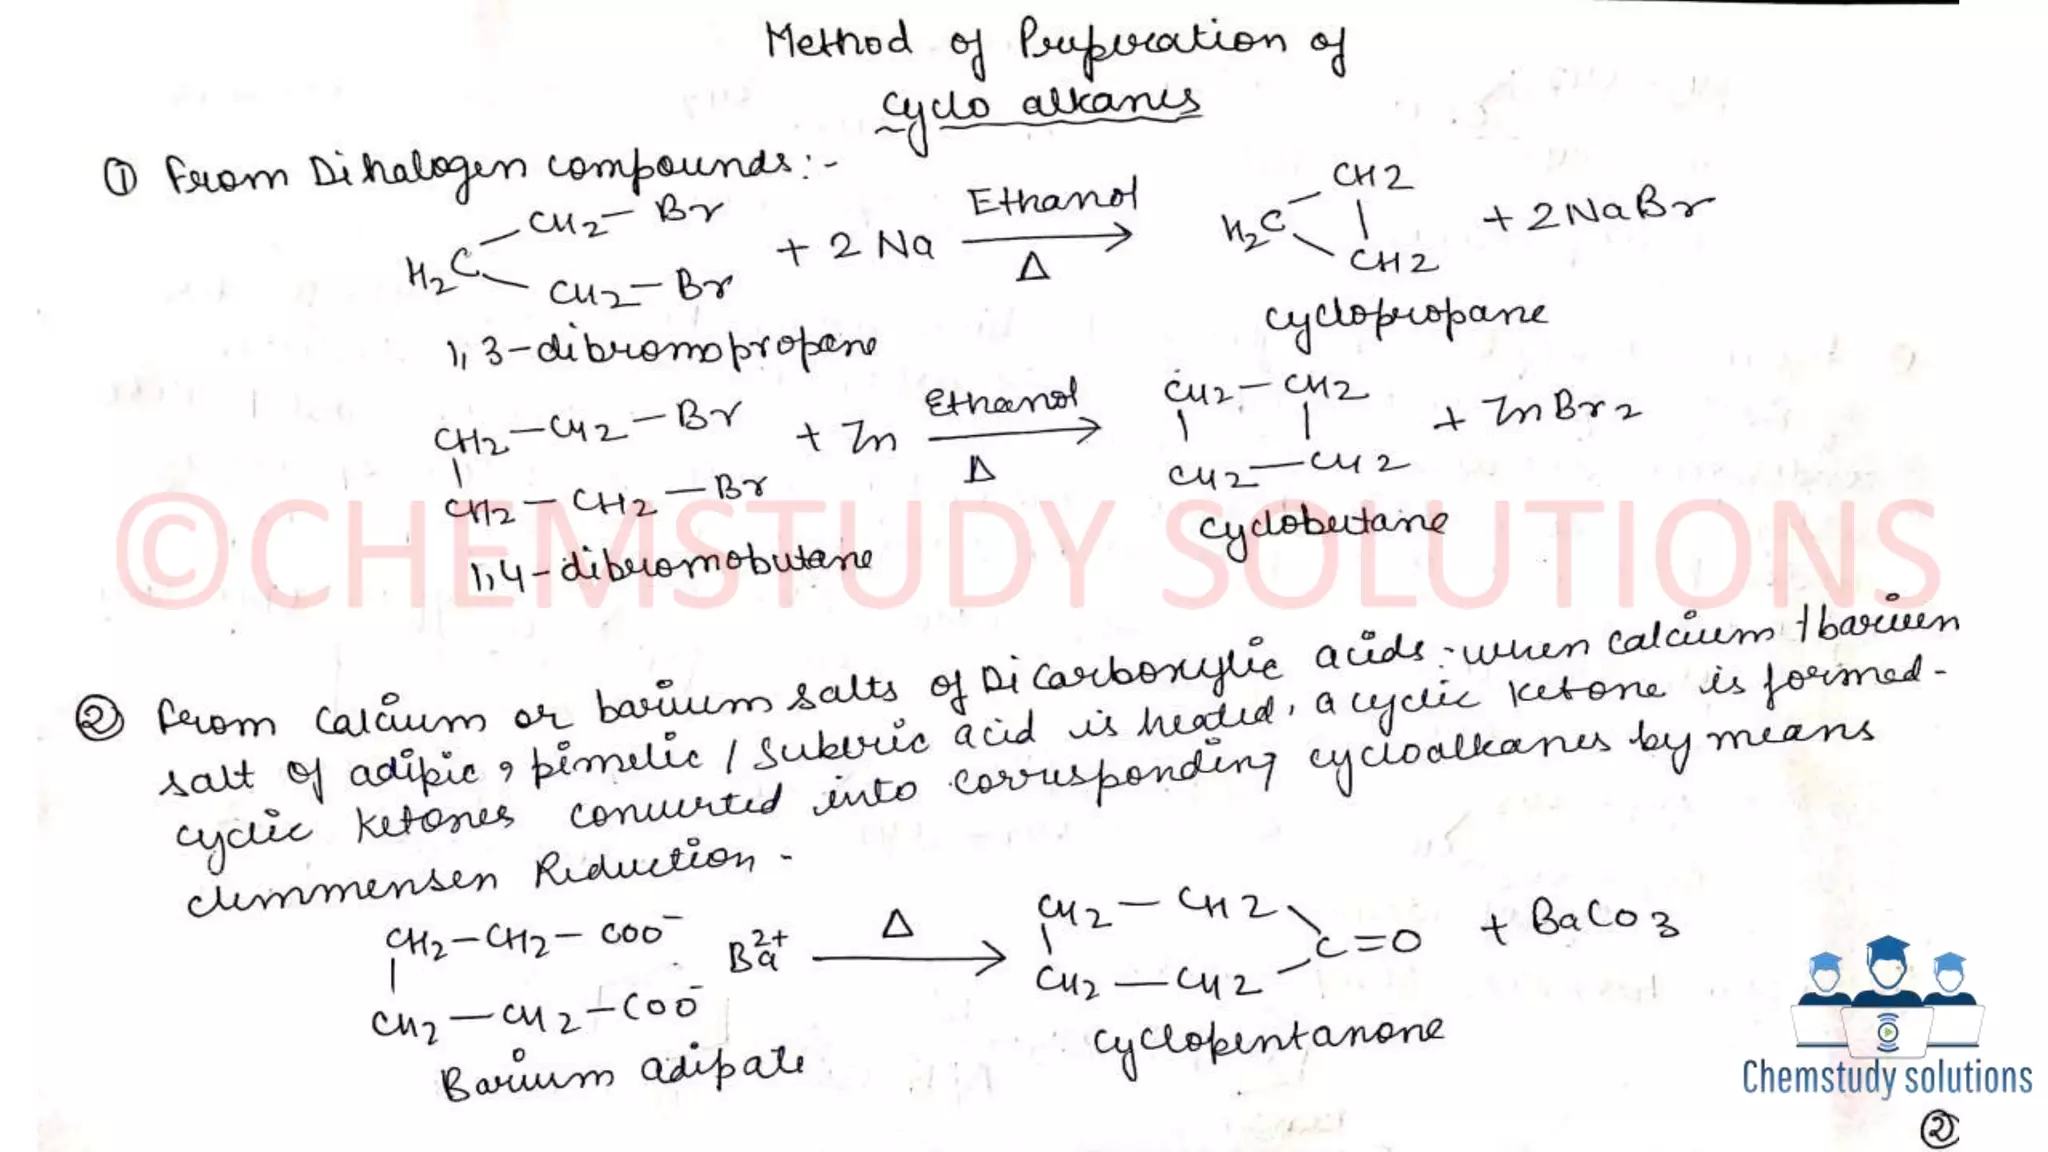 Method of Preperation of
Cyclo alkanes
① From Dihalogen compounds:-
H2C
CH2-Br
CH2-Br
+ 2 Na
Ethanol
Δ
H2C
CH2
CH2
+ 2NaBr
1,3-dibromopropane
cyclopropane
CH2-CH2-Br
CH2-CH2-Br
+ Zn
Ethanol
Δ
CH2-CH2
CH2-CH2
+ ZnBr2
1,4-dibromobutane
cyclobutane
©CHEMSTUDY SOLUTIONS
② From Calcium or barium salts of Dicarboxylic acids:- when calcium / barium
salt of adipic, pimelic / Suberic acid is heated, a cyclic ketone is formed-
cyclic ketones converted into corresponding cycloalkanes by means
clemmensen Reduction-
CH2-CH2-COO⁻
CH2-CH2-COO⁻
Ba2+
Δ
CH2-CH2
CH2-CH2
C=O
+ BaCO3
Barium adipate
cyclopentanone
Chemstudy solutions
②